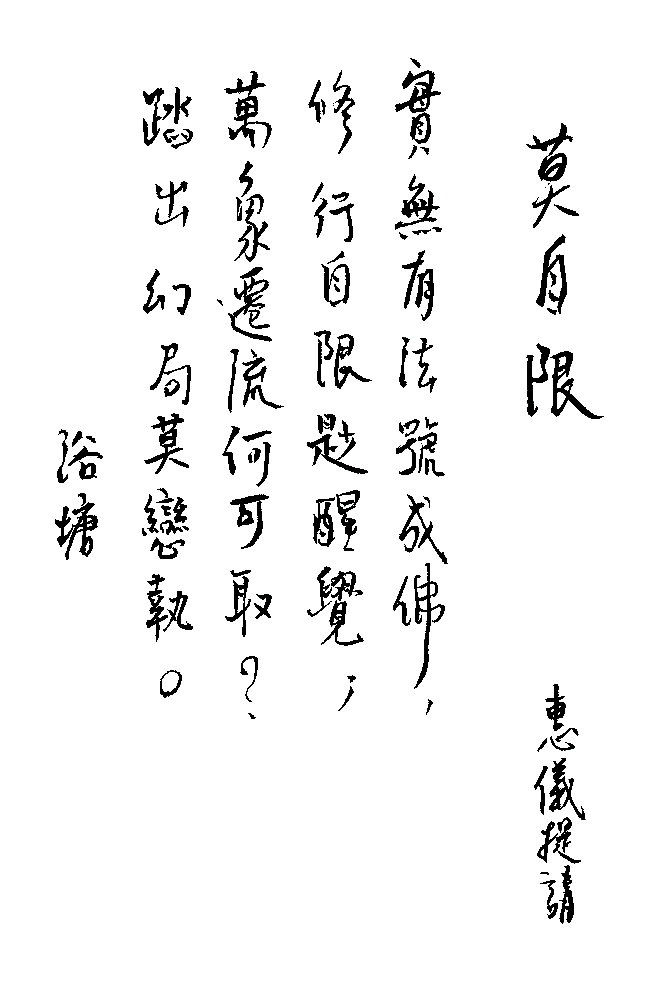 莫自限
惠儀提請
實無有法號成佛，
修行自限尟醒覺；
萬象遷流何可取？
踏出幻局莫戀執。
浴塘